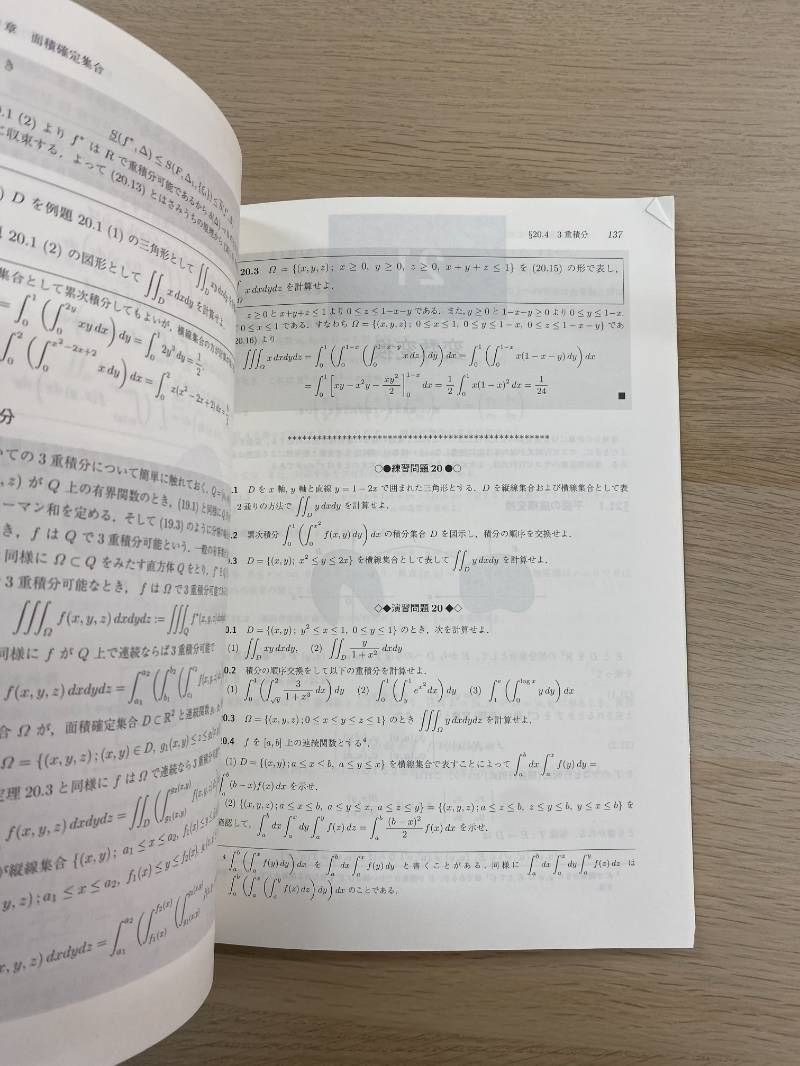 章 面積確定集合
き
S(f*, Δ) ≤ S(F, Δ, {ξ}) ≤
.1 (2) より f* は R で重積分可能であるから
に収束する. よって (20.13) とはさみうちの原理から
) D を例題 20.1 (1) の三角形として ∬_D
20.1 (2) の図形として ∬_D x dxdy を計算せよ.
集合として累次積分してもよいが, 横線集合の方が
= ∫_0^1 (∫_0^{2y} xy dx) dy = ∫_0^1 2y^3 dy = 1/2.
∫_0^2 (∫_0^{x^2−2x+2} x dy) dx = ∫_0^2 x(x^2−2x+2) dx =
分
ての 3 重積分について簡単に触れておく.
, z) が Q 上の有界関数のとき, (19.1) と同様に
ーマン和を定める. そして (19.3) のように
き, f は Q で 3 重積分可能という. 一般の有界
同様に Ω ⊂ Q をみたす直方体 Q をとり,
3 重積分可能なとき, f は Ω で 3 重積分可能
∭_Ω f(x, y, z) dxdydz := ∭_Q f*(x, y, z) dxdydz
同様に f が Q 上で連続ならば 3 重積分可能で
f(x, y, z) dxdydz = ∫_{a_1}^{a_2} (∫_{b_1}^{b_2} (∫
合 Ω が, 面積確定集合 D ⊂ R^2 と連続関数
Ω = {(x, y, z) ; (x, y) ∈ D, g_1(x, y) ≤ z ≤ g_2(x, y)
定理 20.3 と同様に f は Ω で連続なら 3 重積分
f(x, y, z) dxdydz = ∬_D (∫_{g_1(x,y)}^{g_2(x,y)}
が縦線集合 {(x, y) ; a_1 ≤ x ≤ a_2, f_1(x) ≤ y
y, z) ; a_1 ≤ x ≤ a_2, f_1(x) ≤ y ≤ f_2(x),
x, y, z) dxdydz = ∫_{a_1}^{a_2} (∫_{f_1(x)}^{f_2(x)} (∫
§20.4 3 重積分 137
20.3 Ω = {(x, y, z) ; x ≥ 0, y ≥ 0, z ≥ 0, x + y + z ≤ 1} を (20.15) の形で表し,
x dxdydz を計算せよ.
z ≥ 0 と x+y+z ≤ 1 より 0 ≤ z ≤ 1−x−y である. また, y ≥ 0 と 1−x−y ≥ 0 より 0 ≤ y ≤ 1−x.
0 ≤ x ≤ 1 である. すなわち Ω = {(x, y, z) ; 0 ≤ x ≤ 1, 0 ≤ y ≤ 1−x, 0 ≤ z ≤ 1−x−y} であ
20.16) より
∭_Ω x dxdydz = ∫_0^1 (∫_0^{1−x} (∫_0^{1−x−y} x dz) dy) dx = ∫_0^1 (∫_0^{1−x} x(1−x−y) dy) dx
= ∫_0^1 [xy − x^2y − xy^2/2]_0^{1−x} dx = 1/2 ∫_0^1 x(1−x)^2 dx = 1/24
■
*****************************************************
○●練習問題 20●○
.1 D を x 軸, y 軸と直線 y = 1−2x で囲まれた三角形とする. D を縦線集合および横線集合として表
2 通りの方法で ∬_D y dxdy を計算せよ.
.2 累次積分 ∫_0^1 (∫_0^{x^2} f(x, y) dy) dx の積分集合 D を図示し, 積分の順序を交換せよ.
0.3 D = {(x, y) ; x^2 ≤ y ≤ 2x} を横線集合として表して ∬_D y dxdy を計算せよ.
◇◆演習問題 20◆◇
0.1 D = {(x, y) ; y^2 ≤ x ≤ 1, 0 ≤ y ≤ 1} のとき, 次を計算せよ.
(1) ∬_D xy dxdy, (2) ∬_D y/(1+x^2) dxdy
0.2 積分の順序交換をして以下の重積分を計算せよ.
(1) ∫_0^4 (∫_{√y}^2 3/(1+x^3) dx) dy (2) ∫_0^1 (∫_y^1 e^{x^2} dx) dy (3) ∫_1^e (∫_0^{log x} y dy) dx
0.3 Ω = {(x, y, z) ; 0 ≤ x ≤ y ≤ z ≤ 1} のとき ∭_Ω y dxdydz を計算せよ.
0.4 f を [a, b] 上の連続関数とする^4.
(1) D = {(x, y) ; a ≤ x ≤ b, a ≤ y ≤ x} を横線集合で表すことによって ∫_a^b dx ∫_a^x f(y) dy =
∫_a^b (b−x)f(x) dx を示せ.
(2) {(x, y, z) ; a ≤ x ≤ b, a ≤ y ≤ x, a ≤ z ≤ y} = {(x, y, z) ; a ≤ z ≤ b, z ≤ y ≤ b, y ≤ x ≤ b} を
確認して, ∫_a^b dx ∫_a^x dy ∫_a^y f(z) dz = ∫_a^b (b−x)^2/2 f(x) dx を示せ.
4 ∫_a^b (∫_a^x f(y) dy) dx を ∫_a^b dx ∫_a^x f(y) dy と書くことがある. 同様に ∫_a^b dx ∫_a^x dy ∫_a^y f(z) dz は
∫_a^b (∫_a^x (∫_a^y f(z) dz) dy) dx のことである.